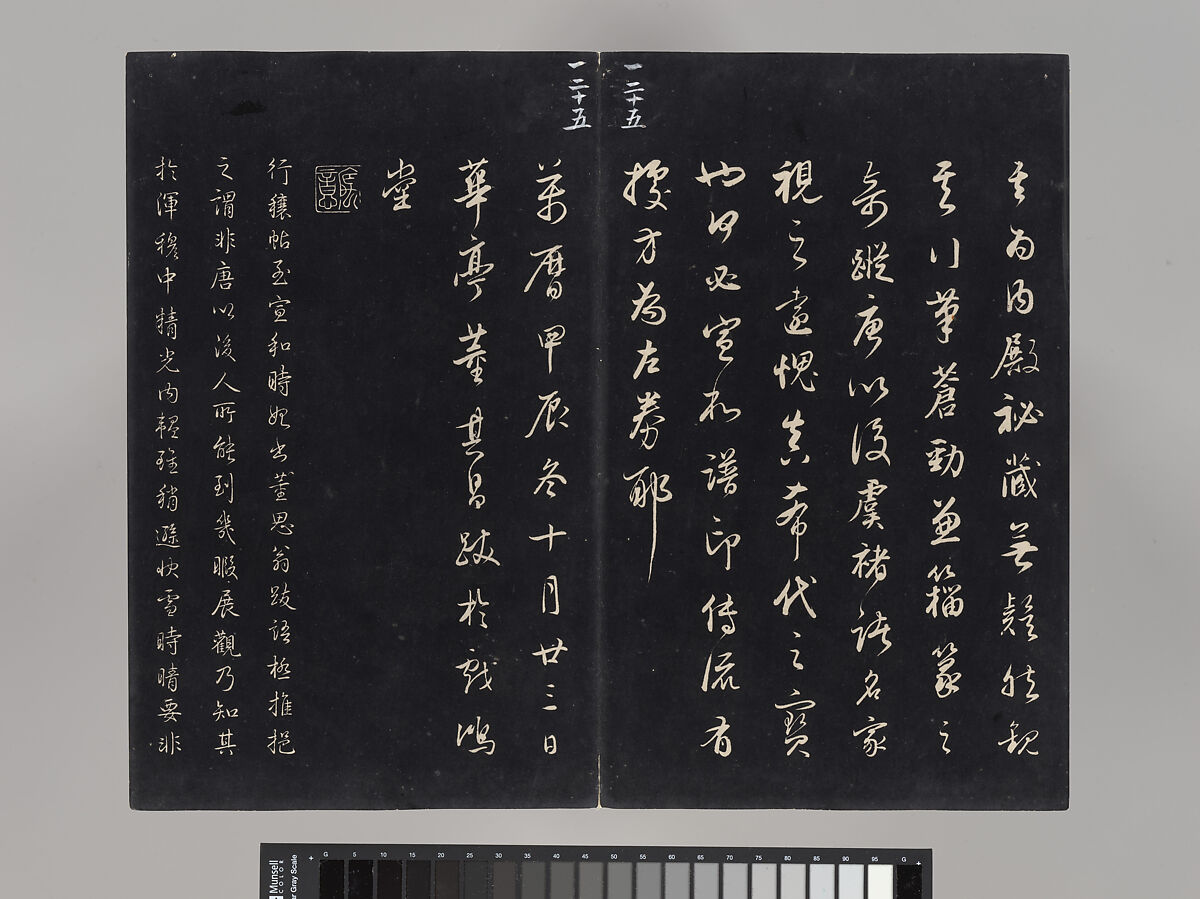 一二十五
其為內殿祕藏無疑然觀
其行筆蒼勁兼籀篆之
奇蹤唐以後虞褚諸名家
視之遠愧真希代之寶
也何必宣和譜印傳流有
據方為左券耶
一二十五
萬曆甲辰冬十月廿三日
華亭董其昌跋於戲鴻
堂
行穰帖至宣和時始出董思翁跋語極推挹
之謂非唐以後人所能到幾暇展觀乃知其
於渾穆中精光內韞雖稍遜快雪時晴要非
G 5 10 15 20 25 30 35 40 45 50 55 60 65 70 75 80 85 90 95 G
Munsell
COLOR